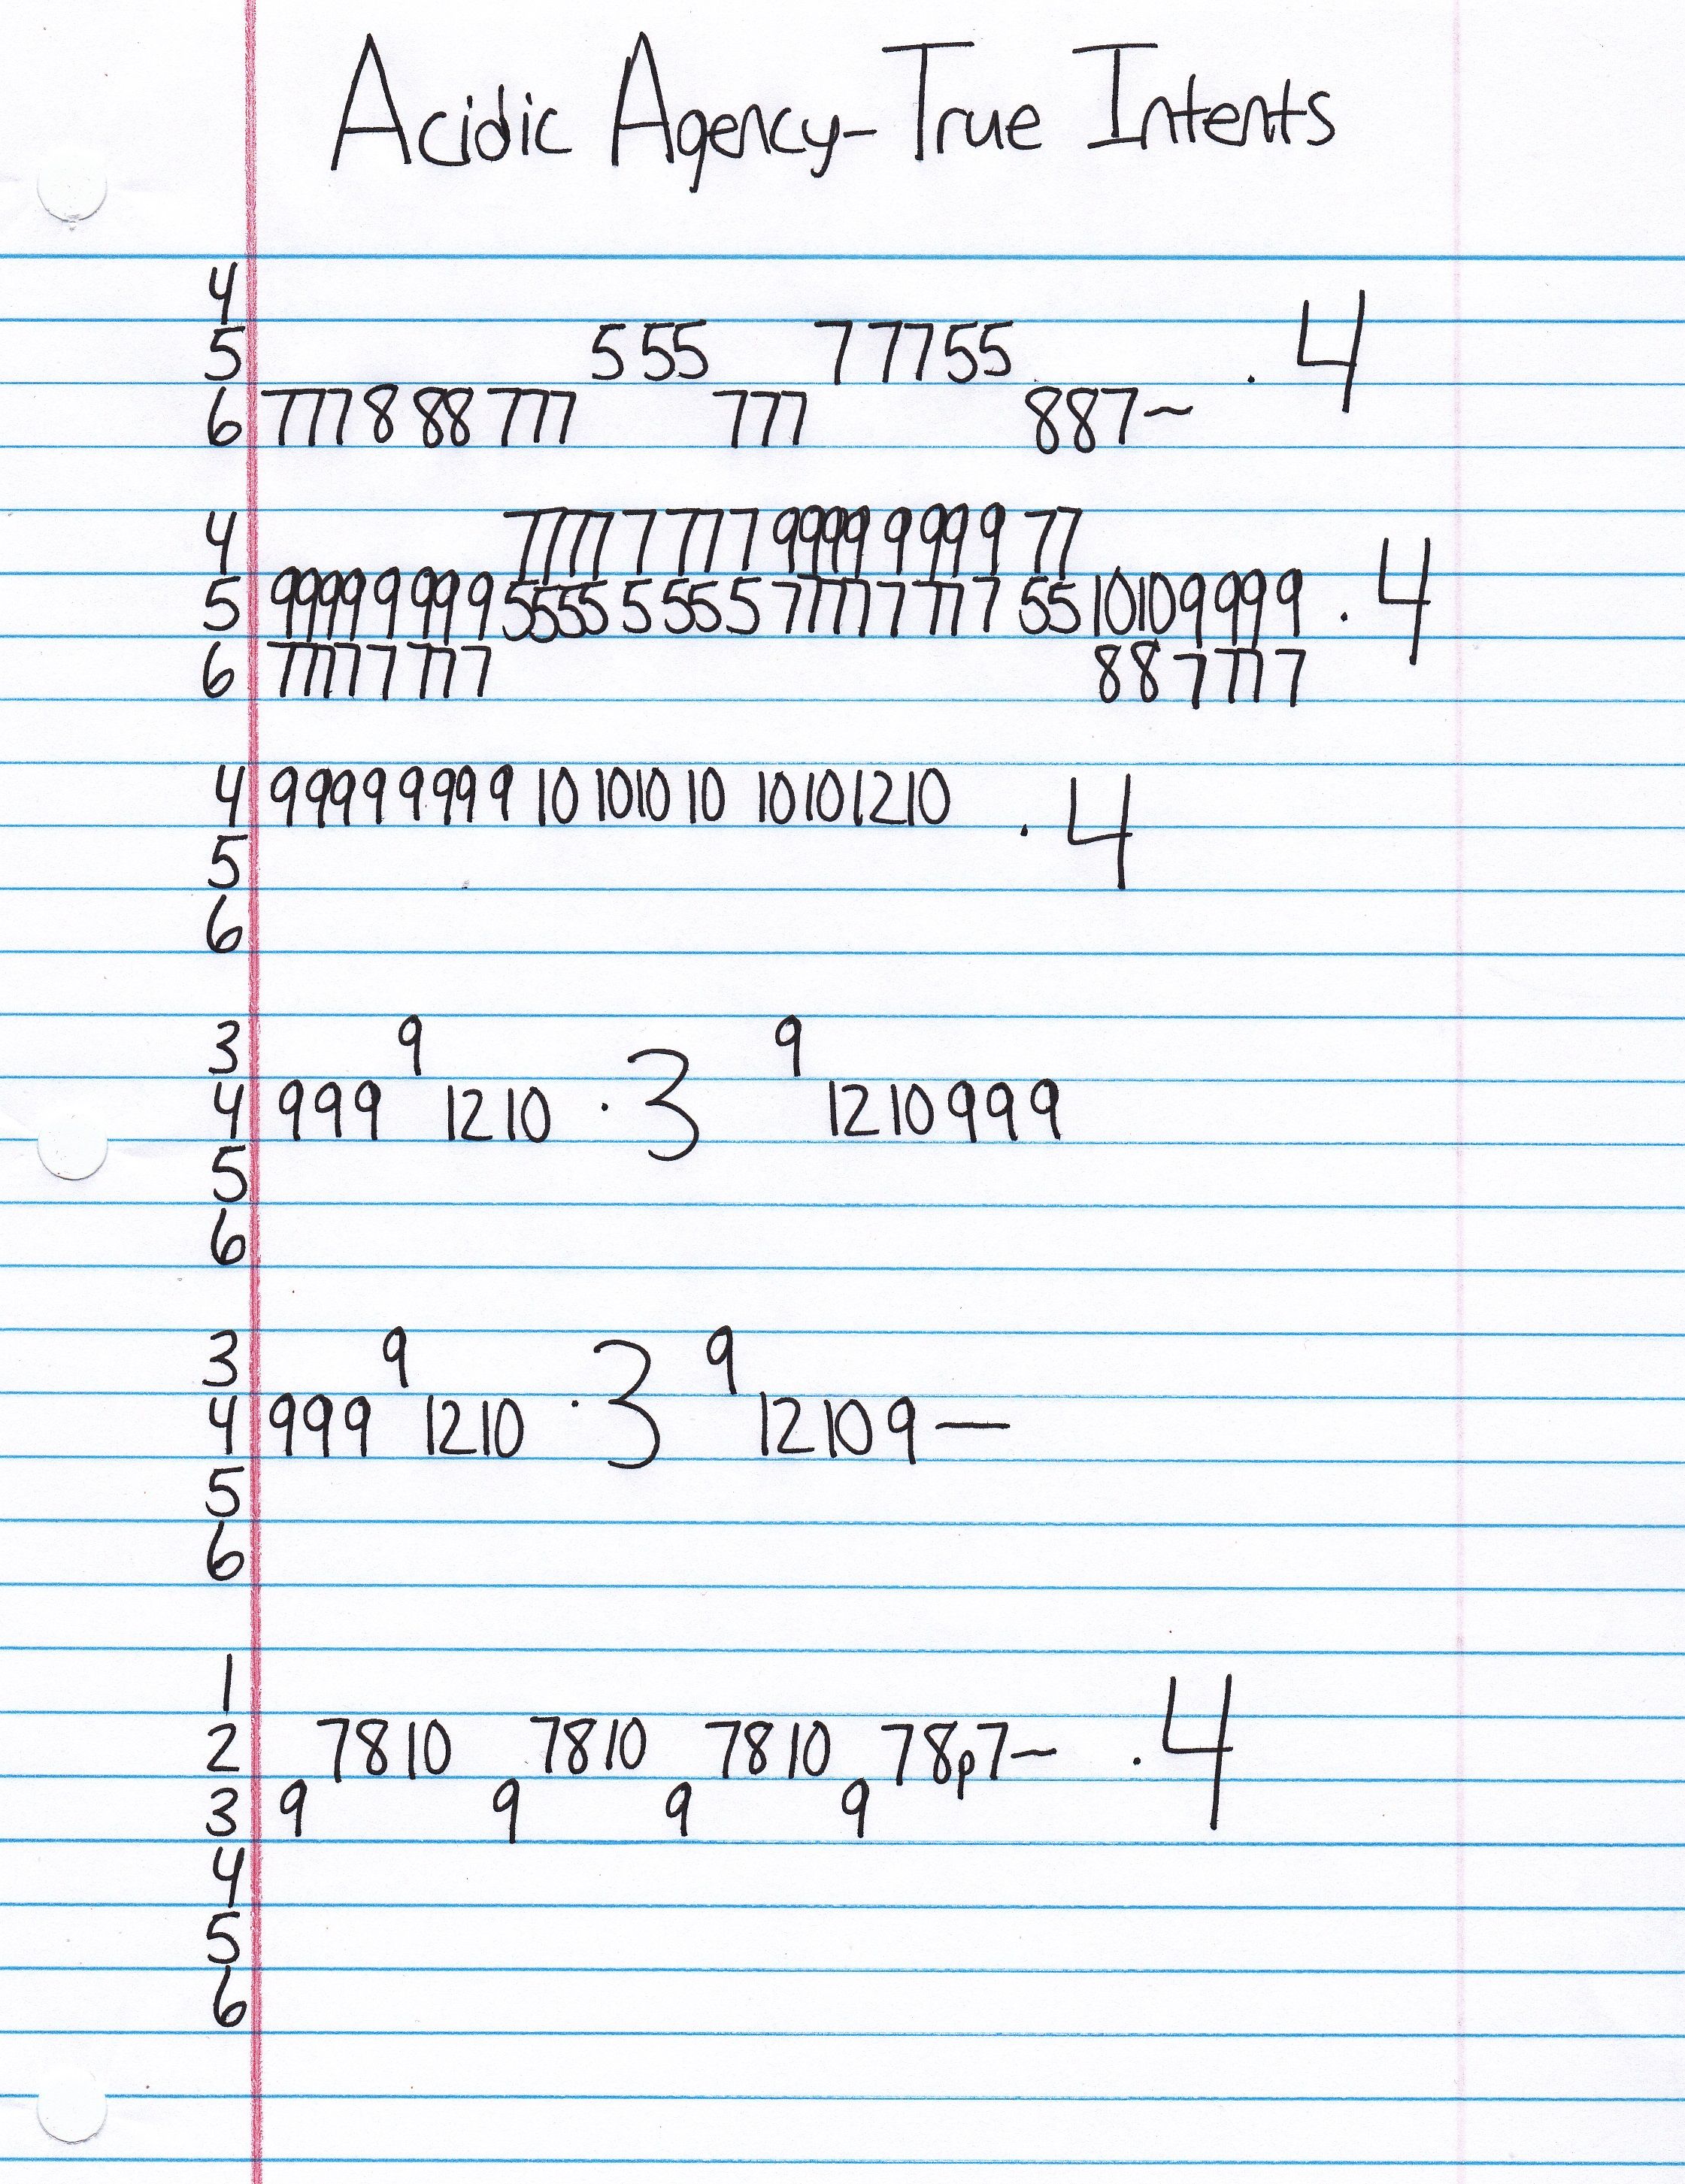 Acidic Agency-True Intents
4
5 5 55 7 7755 . 4
6 7778 88 777 777 887~
4 7777 7 77 7 9999 9 99 9 77
5 9999 9 99 9 5555 5 55 5 7777 7 77 7 55 10109 99 9 . 4
6 7777 7 77 7 887 77 7
4 9999 999 9 10 1010 10 10101210 . 4
5
6
3 9 9
4 999 1210 . 3 1210999
5
6
3 9 9
4 999 1210 . 3 12109—
5
6
1
2 7810 7810 7810 78p7~ . 4
3 9 9 9 9
4
5
6